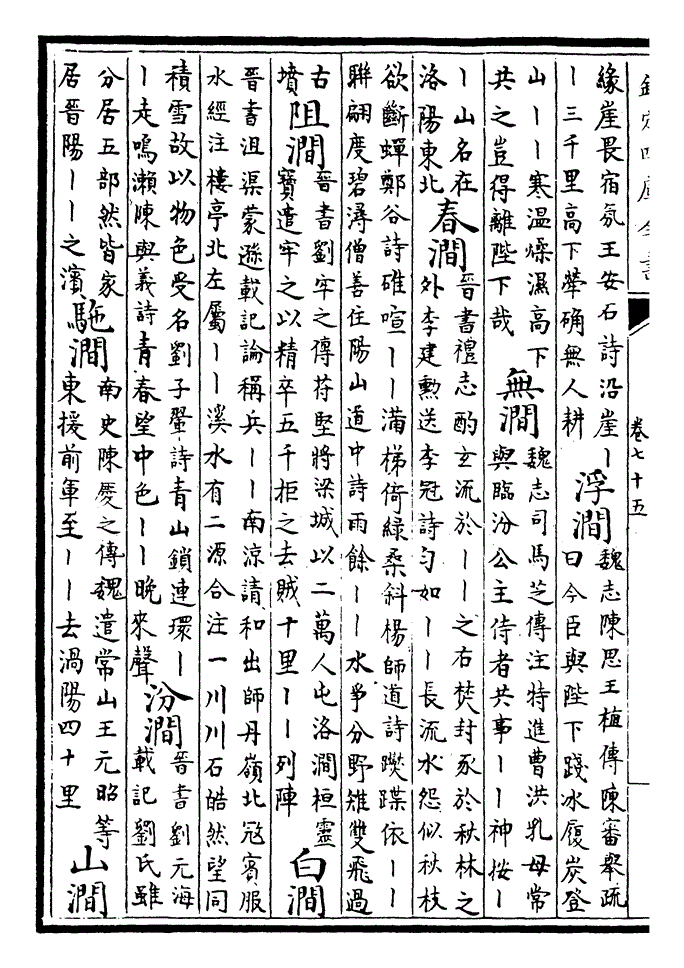 欽定四庫全書
卷七十五
緣崖畏宿氛王安石詩沿崖丨
丨三千里高下犖确無人耕
浮澗
魏志陳思王植傳陳審舉疏
曰今臣與陛下踐冰履炭登
山丨丨寒温燥濕高下
共之豈得離陛下哉
無澗
魏志司馬芝傳注特進曹洪乳母常
與臨汾公主侍者共事丨丨神按丨
丨山名在
洛陽東北
春澗
晉書禮志酌玄流於丨丨之右焚封豕於秋林之
外李建勲送李冠詩匀如丨丨長流水怨似秋枝
欲斷蟬鄭谷詩碓喧丨丨滿梯倚綠桑斜楊師道詩躞蹀依丨丨
聨翩度碧潯僧善住陽山道中詩雨餘丨丨水爭分野雉雙飛過
古
墳
阻澗
晉書劉牢之傳苻堅將梁城以二萬人屯洛澗桓靈
寳遣牢之以精卒五千拒之去賊十里丨丨列陣
白澗
晉書沮渠蒙遜載記論稱兵丨丨南涼請和出師丹嶺北寇賓服
水經注樓亭北左屬丨丨溪水有二源合注一川川石皓然望同
積雪故以物色受名劉子翬詩青山鎖連環丨
丨走鳴瀨陳與義詩青春望中色丨丨晚來聲
汾澗
晉書劉元海
載記劉氏雖
分居五部然皆家
居晉陽丨丨之濱
駞澗
南史陳慶之傳魏遣常山王元昭等
東援前軍至丨丨去渦陽四十里
山澗